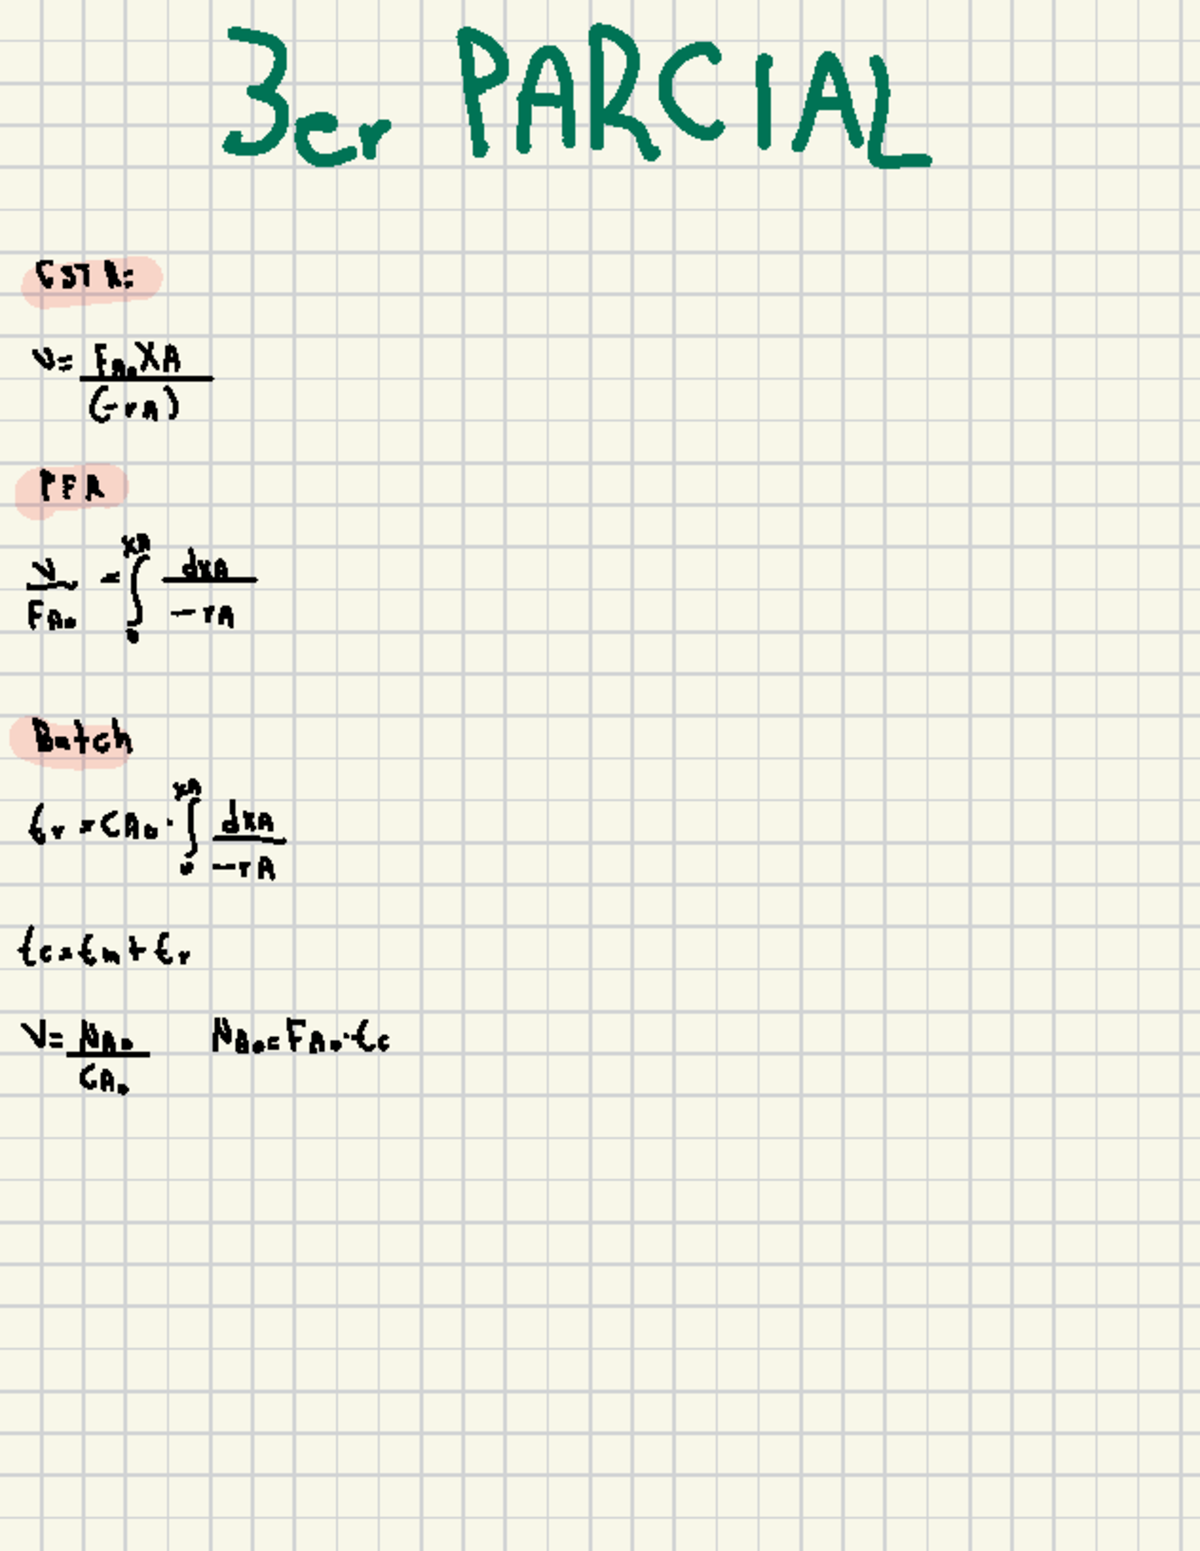 3er PARCIAL
CSTR:
V= FA₀XA / (-rA)
PFR
V / FA₀ = ∫₀^XA dXA / -rA
Batch
tr = CA₀ · ∫₀^XA dXA / -rA
tc = tm + tr
V= NA₀ / CA₀    NA₀=FA₀·tc